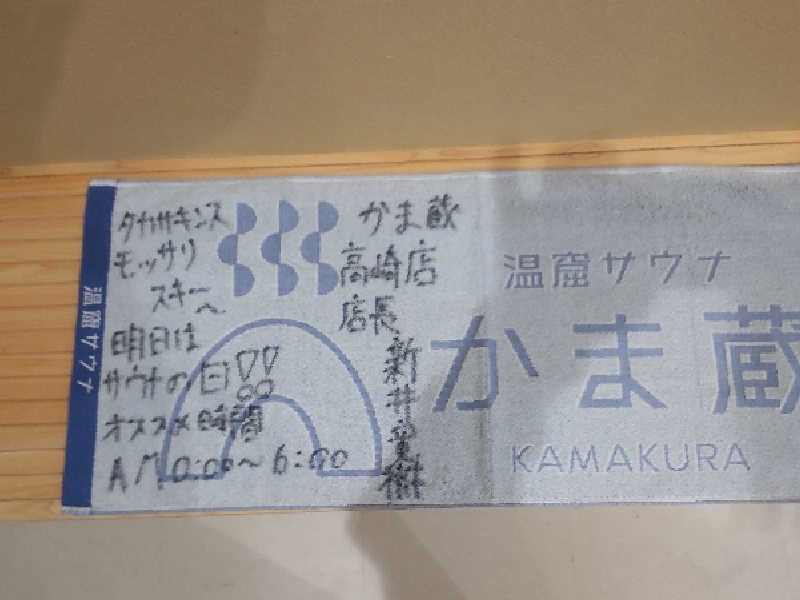 タカサキンス
モッサリ
スキーへ
明日は
サウナの日!!
オススメ時間
AM0:00～6:00
かま蔵
高崎店
店長
新井
樹
温窟サウナ
かま蔵
KAMAKURA
温窟サウナ